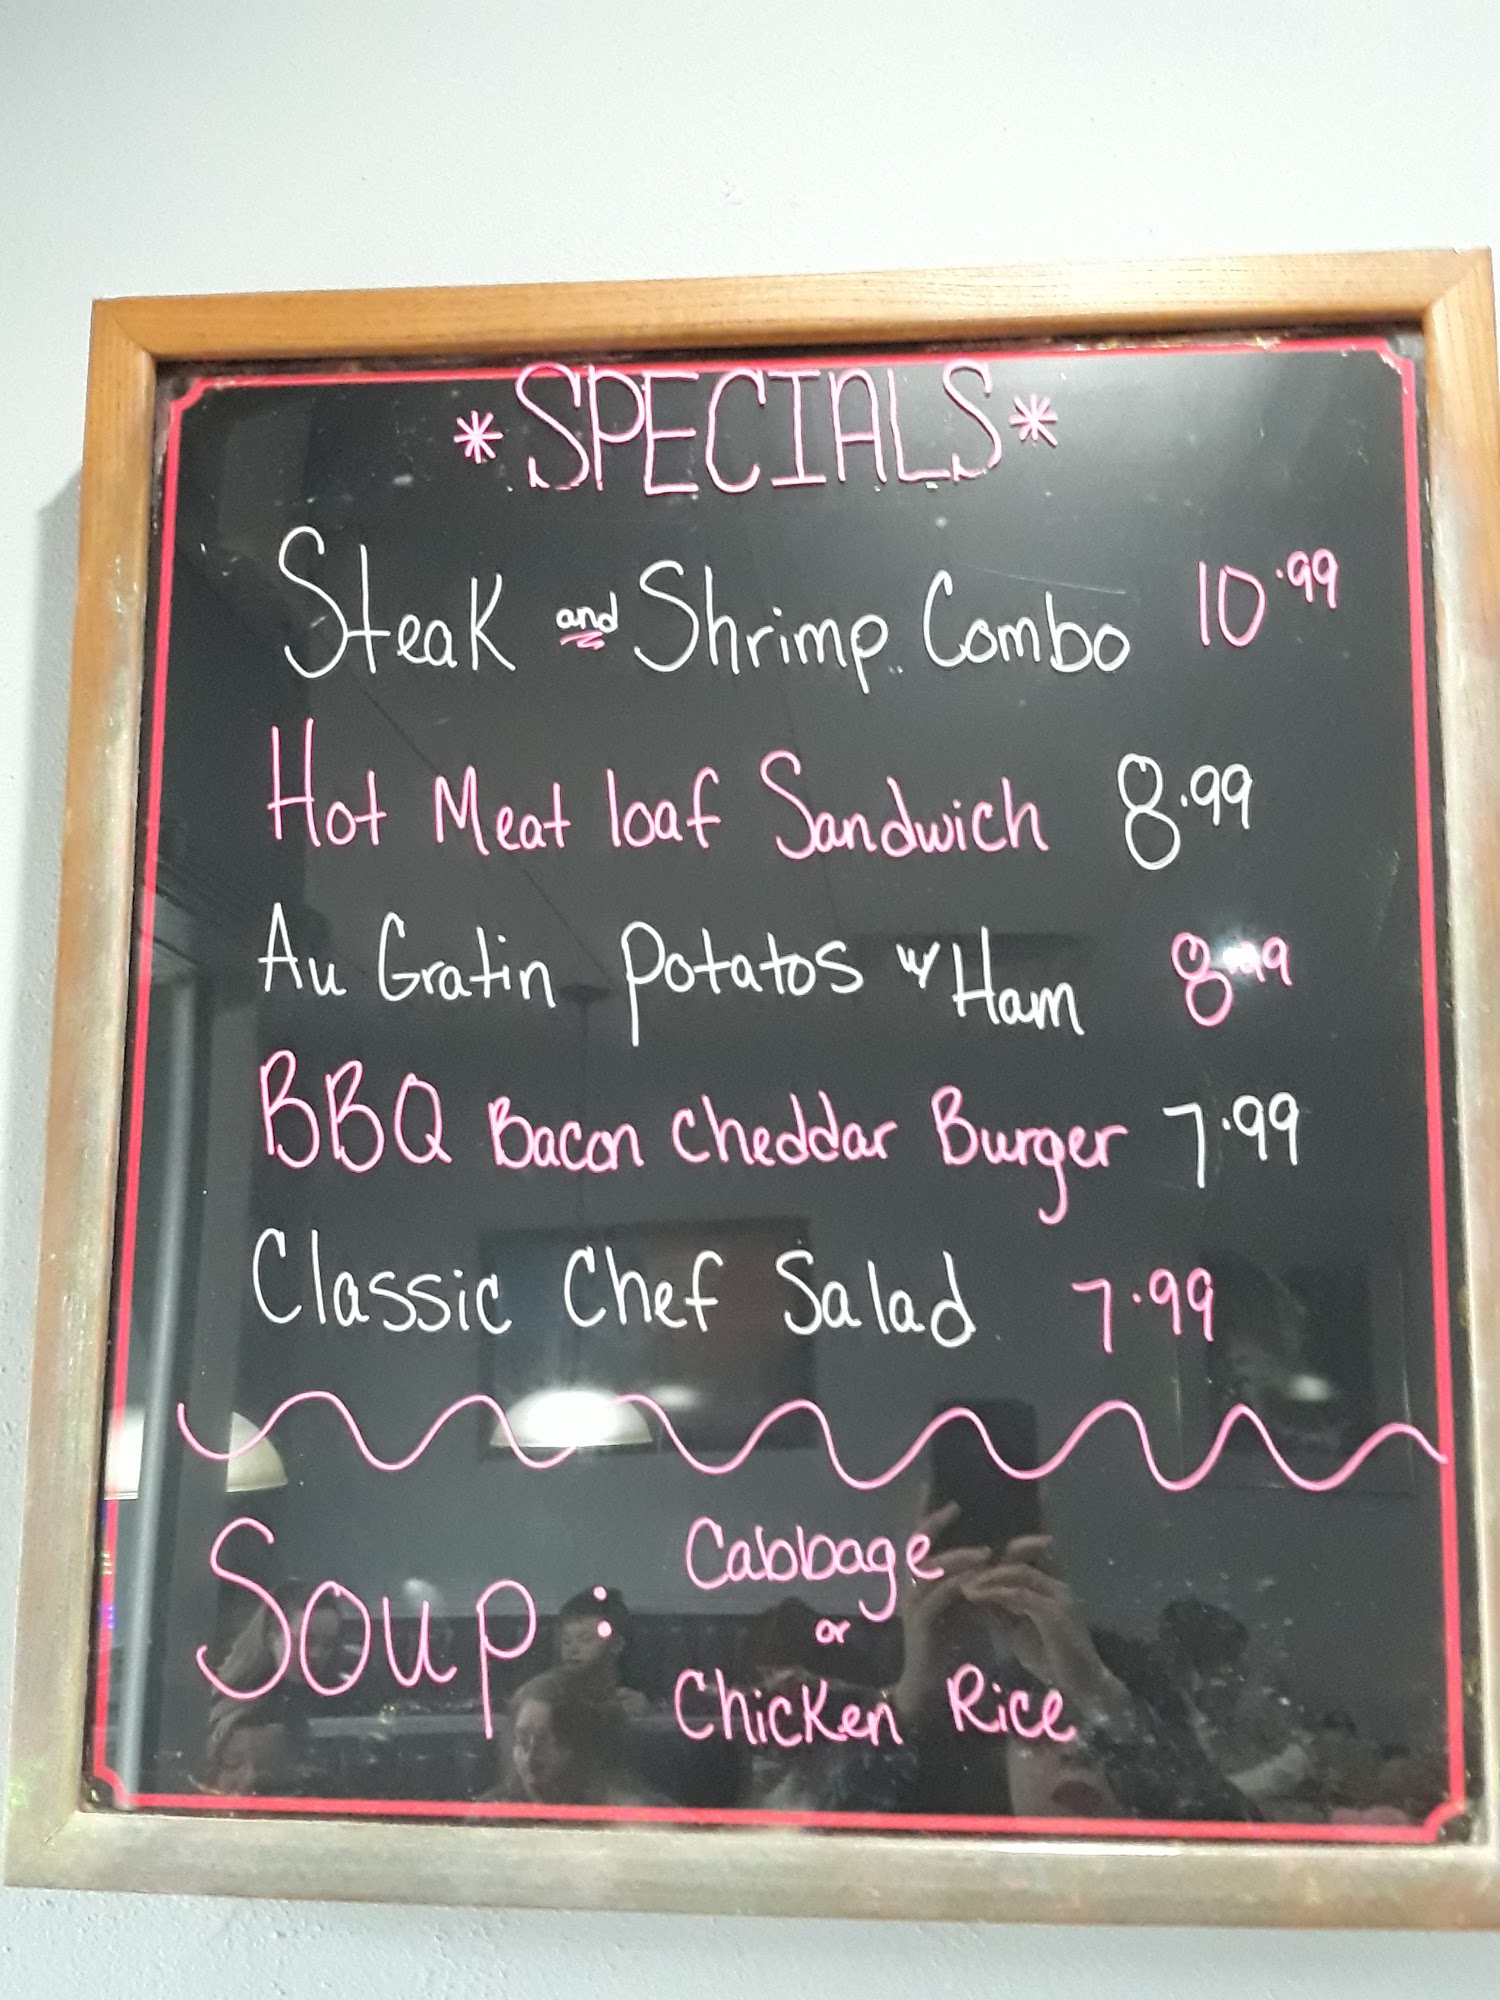 *SPECIALS*
Steak and Shrimp Combo 10.99
Hot Meat loaf Sandwich 8.99
Au Gratin Potatos w/ Ham 8.99
BBQ Bacon Cheddar Burger 7.99
Classic Chef Salad 7.99
Soup: Cabbage
or
Chicken Rice